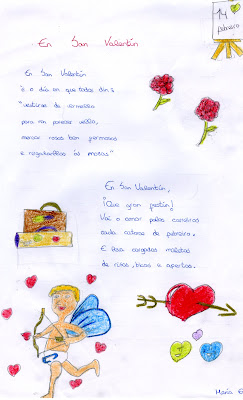 14
febreiro
En San Valentín
En San Valentín
é o día en que todos din:
"vestirse de vermello
para non parecer vello,
mercar rosas ben fermosas
e regalarllas ás mozas"
En San Valentín,
¡Que gran festín!
Vai o amor polos camiños
cada catorce de febreiro.
E leva cargadas maletas
de risas, bicos e apertas.
María